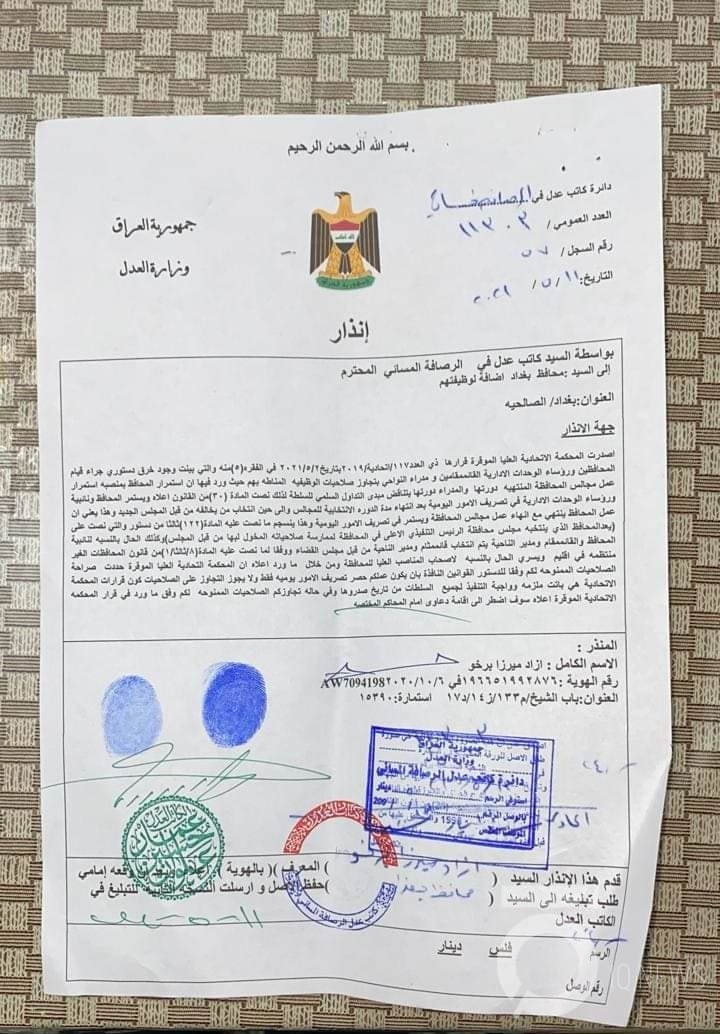 بسم الله الرحمن الرحيم
جمهورية العراق
وزارة العدل
دائرة كاتب عدل في
العدد العمومي / ١١٣٠٣
رقم السجل / ٥٧
التاريخ: ١١ / ٥ / ٢٠٢١
إنذار
بواسطة السيد كاتب عدل في الرصافة المسائي المحترم
إلى السيد :محافظ بغداد اضافة لوظيفتهم
العنوان:بغداد/ الصالحيه
جهة الانذار
اصدرت المحكمة الاتحادية العليا الموقرة قرارها ذي العدد١١٧/اتحادية/٢٠١٩بتاريخ٢٠٢١/٥/٢ في الفقره(٥)منه والتي بينت وجود خرق دستوري جراء قيام
المحافظين ورؤساء الوحدات الادارية القائممقامين و مدراء النواحي بتجاوز صلاحيات الوظيفيه المناطه بهم حيث ورد فيها ان استمرار المحافظ بمنصبه استمرار
عمل مجالس المحافظة المنتهيه دورتها والمدراء دورتها يتناقض مبدى التداول السلمي للسلطة لذلك نصت المادة (٣٠)من القانون اعلاه ويستمر المحافظ ونابية
ورؤساء الوحدات الادارية في تصريف الامور اليومية بعد انتهاء مدة الدوره الانتخابية للمجالس والى حين انتخاب من يخالفه من قبل المجلس الجديد وهذا يعني ان
عمل المحافظ ينتهي مع انهاء عمل مجالس المحافظة ويستمر في تصريف الامور اليومية وهذا ينسجم ما نصت عليه المادة(١٢٢)ثالثا من دستور والتي نصت على
(يعدالمحافظ الذي ينتخبه مجلس محافظة الرئيس التنفيذي الاعلى في المحافظة لممارسة صلاحياته المخول لبها من قبل المجلس)وكذلك الحال بالنسبه لنابية
المحافظ والقائممقام ومدير الناحية يتم انتخاب قائممئم ومدير الناحية من قبل مجلس القضاء ووفقا لما نصت عليه المادة(٨/ثالثا/١)من قانون المحافظات الغير
منتظمه في اقليم ويسري الحال بالنسبه لاصحاب المناصب العليا للمحافظة ومن خلال ما ورد اعلاه ان المحكمة التحادية العليا الموقرة حددت صراحة
الصلاحيات الممنوحه لكم وفقا للدستور القوانين النافذة بان يكون عملكم حصر تصريف الامور يوميه فقط ولا يجوز التجاوز على الصلاحيات كون قرارات المحكمة
الاتحادية هي باتت ملزمه وواجبة التنفيذ لجميع السلطات من تاريخ صدروها وفي حاله تجاوزكم الصلاحيات الممنوحه لكم وفق ما ورد في قرار المحكمة
الاتحادية الموقرة اعلاه سوف اضطر الى اقامة دعاوى امام المحاكم المختصه
المنذر :
الاسم الكامل : ازاد ميرزا برخو
رقم الهوية :١٩٦٦٥١٩٩٢٨٧٦في ٢٠٢٠/١٠/٦ AW7094198
العنوان:باب الشيخ/م١٣٣/ز١٤/د١٧ استمارة:١٥٣٩٠
جمهورية العراق
وزارة العدل
دائرة كاتب عدل الرصافة المسائي
استوفي الرسم
دينار
بالوصل المرقم
قدم هذا الإنذار السيد ( ) المعرف ( ) بالهوية
طلب تبليغه الى السيد ( )
للتبليغ في
الكاتب العدل
كاتب عدل الرصافة المسائي
١١-٥-٢٠٢١
الرسم فلس دينار
رقم الوصل
IQNEWS